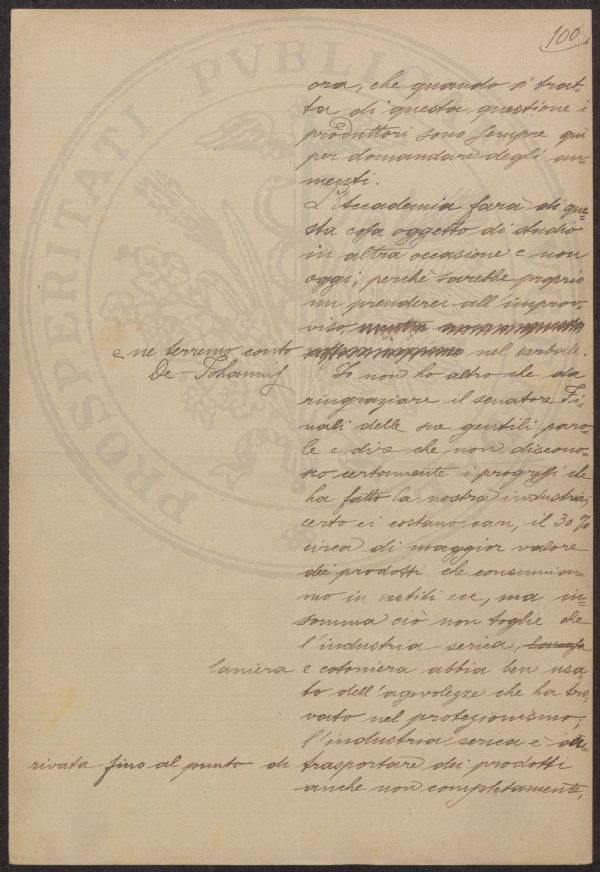 100
PROSPERITATI PVBLIC
ora, che quando si trat=
ta di questa questione i
produttori sono sempre qui
per domandare degli au=
menti.
L'Accademia farà di que=
sta cosa oggetto di studio
in altra occasione e non
oggi, perchè sarebbe proprio
un prenderci all'improv=
viso
e ne terremo conto nel verbale.
De-Johannis Io non ho altro che da
ringraziare il senatore Fi=
nali delle sue gentili paro=
le e dire che non discono=
sco certamente i progressi che
ha fatto la nostra industria,
certo ci costano cari, il 30%
circa di maggior valore
dei prodotti che consumia=
mo in vestiti ecc, ma in=
somma ciò non toglie che
l'industria serica,
laniera e cotoniera abbia ben usa=
to dell'agevolezze che ha tro=
vato nel protezionismo;
l'industria serica è ar=
rivata fino al punto di trasportare dei prodotti
anche non completamente,